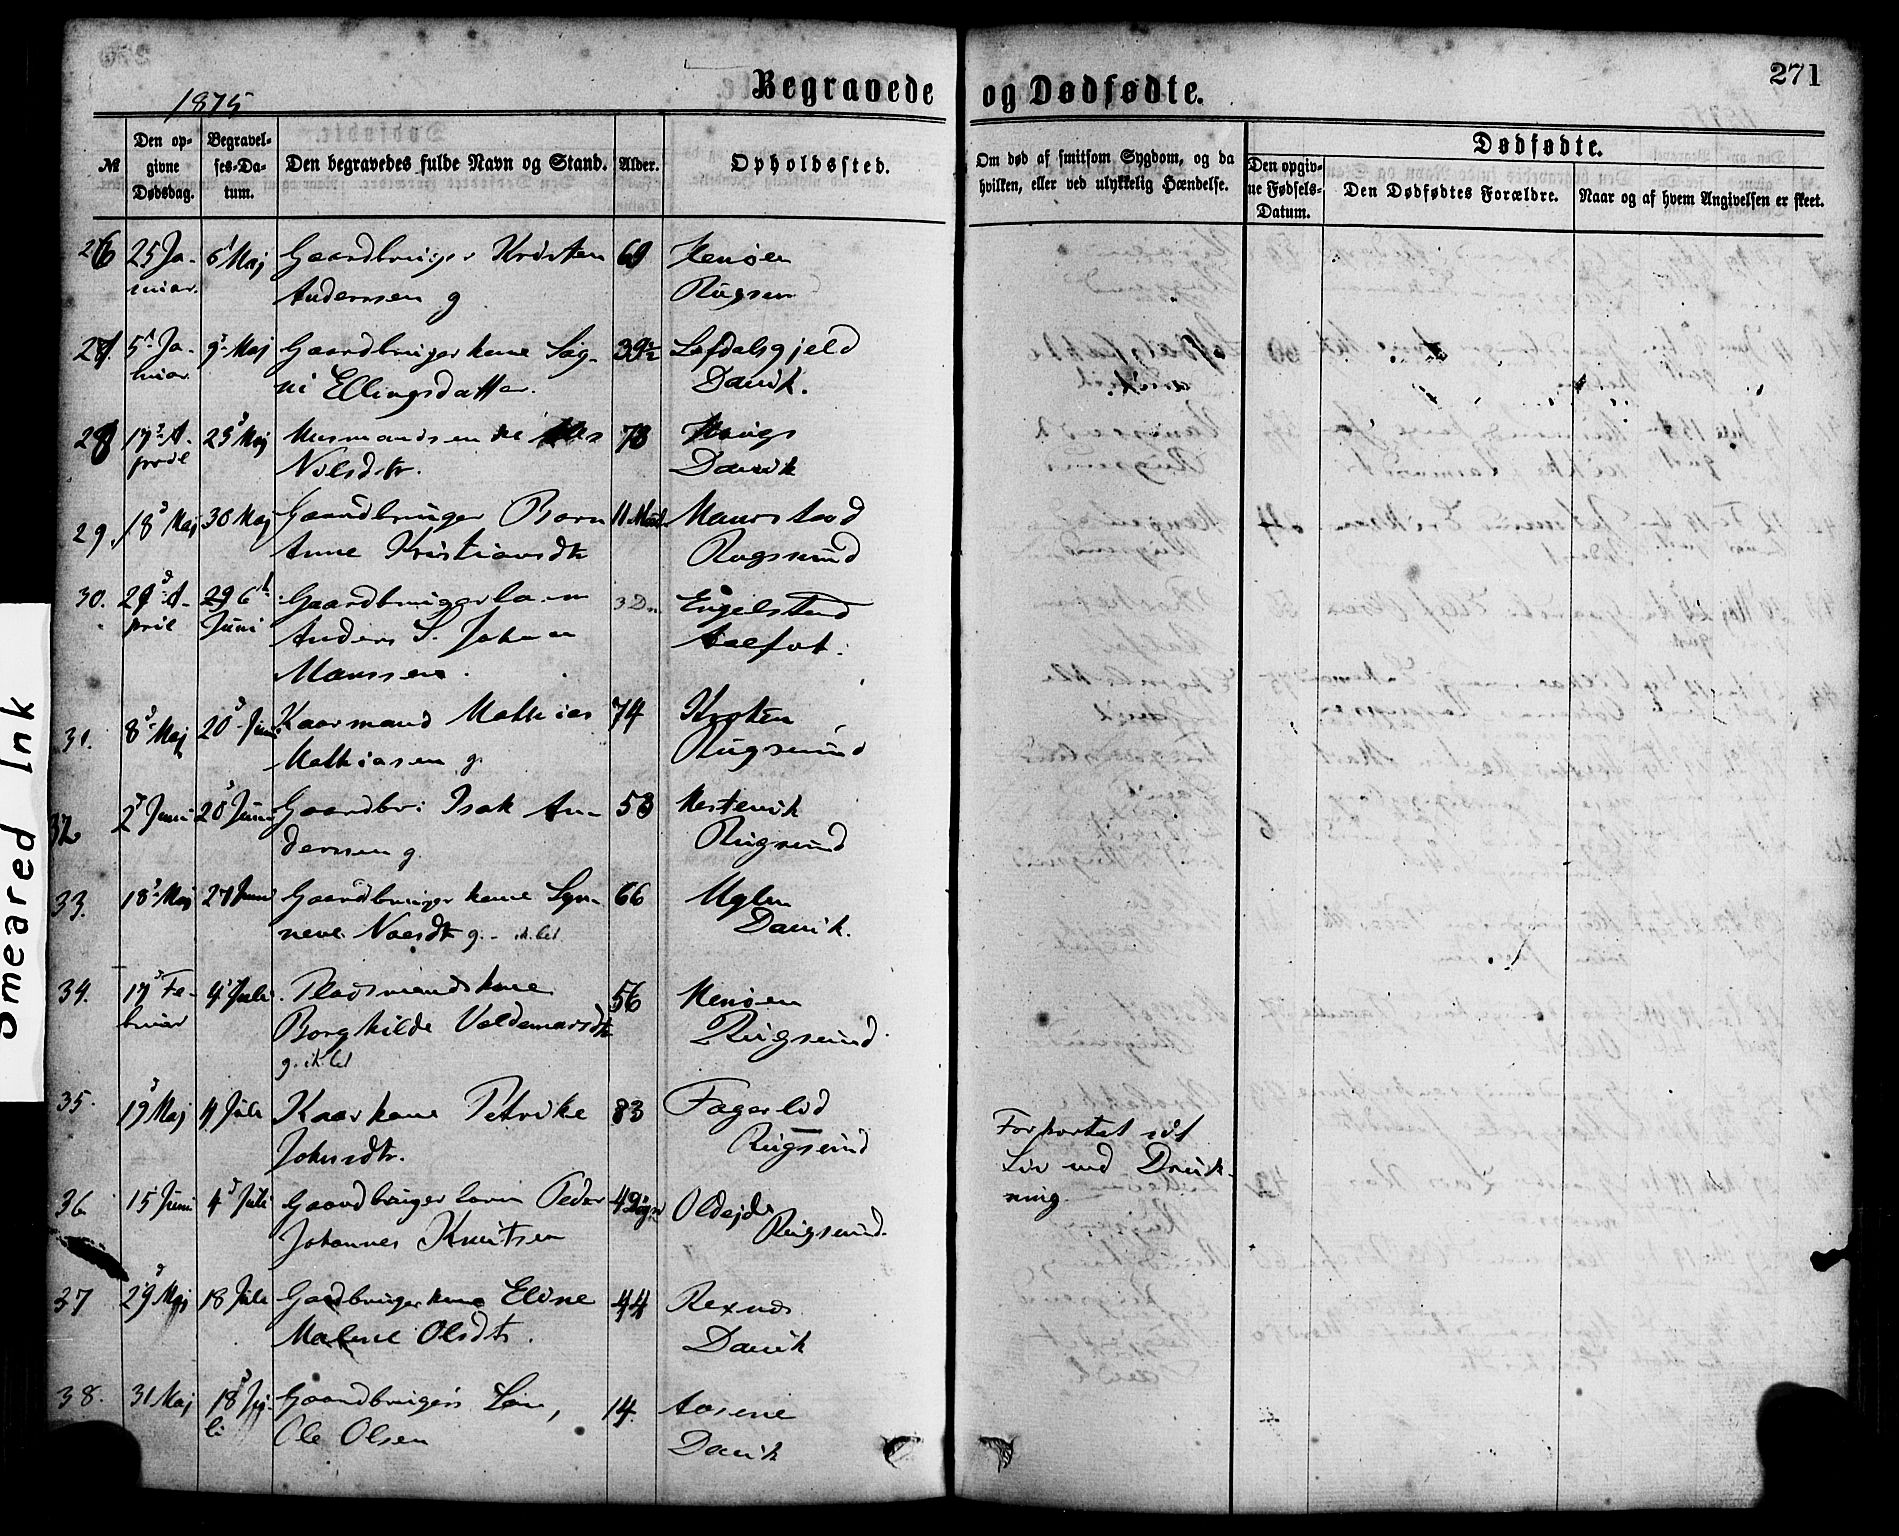 271
1875
Begravede og Dødfødte.
№
Den opgivne Dødsdag.
Begravelses-Datum.
Den begravedes fulde Navn og Stand.
Alder.
Opholdssted.
Om død af smitsom Sygdom, og da hvilken, eller ved ulykkelig Hændelse.
Dødfødte.
Den opgivne Fødsels-Datum.
Den Dødfødtes Forældre.
Naar og af hvem Angivelsen er skeet.
26 25 Ja- 6 Maj Gaardbruger Kristen 69
nuar. Anderssen g
27 5 Ja- 9 Maj Gaardbrugerkone Sig- 39½ Lefdalsgjeld
nuar ni Ellingsdatter. Davik.
28 17 A- 23 Maj 73 Haugs
pril Nilsdtr. Davik
29. 18 Maj 30 Maj Gaardbruger Barn 11 Maurstad
Anne Kristiansdtr Rugsund
30. 29 A- 6 Gaardbrugerbarn 3 D. Engelstad
pril Juni Anders S. Johan Aalfot.
Monssen.
31. 8 Maj 20 Juni Kaarmand Mathias 74
Mathiasen g. Rugsund
32 2 Juni 20 Juni Gaardbr: Isak An- 53 Hestevik
derssen g. Rugsund
33. 18 Maj 27 Juni Gaardbrugerkone Syn- 66
neve g. - ik. let Davik.
34. 17 Fe- 4 Juli Pladsmandskone 56
bruar Borghilde Valdemarsdtr Rugsund
g. ik. let
35. 19 Maj 4 Juli Kaarkone Petrike 83 Fagerlid
Johnsdtr. Rugsund
Forkortet sit
Liv ved Druk-
ning.
36 15 Juni 4 Juli Gaardbrugerbarn Peder 4 Døgn Oldejde
Johannes Knutsen Rugsund.
37 29 Maj 18 Juli Gaardbrugerkone Eline 44
Malene Olsdtr. Davik
38. 31 Maj 18 Ju- Gaardbrugers Søn, 14 Aasene
li Ole Olsen Davik
Smeared Ink